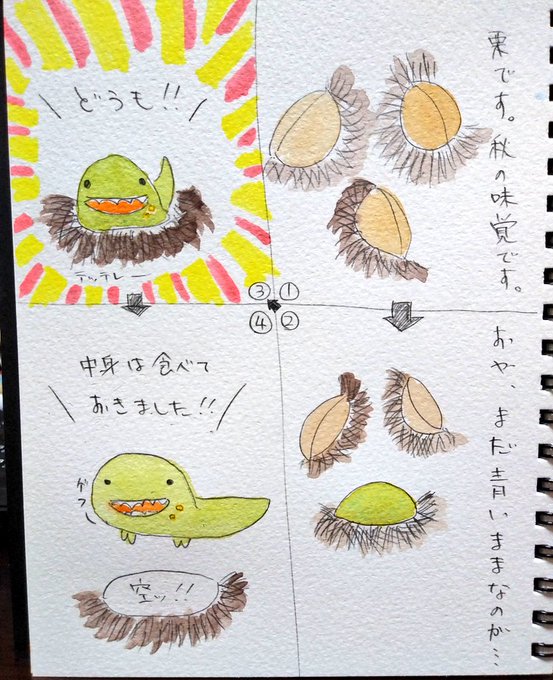 栗です。秋の味覚です。
①
②
おや、まだ青いままなのが…
③
どうも!!
テッテレー
④
中身は食べて
おきました!!
ゲフー
空ッ!!